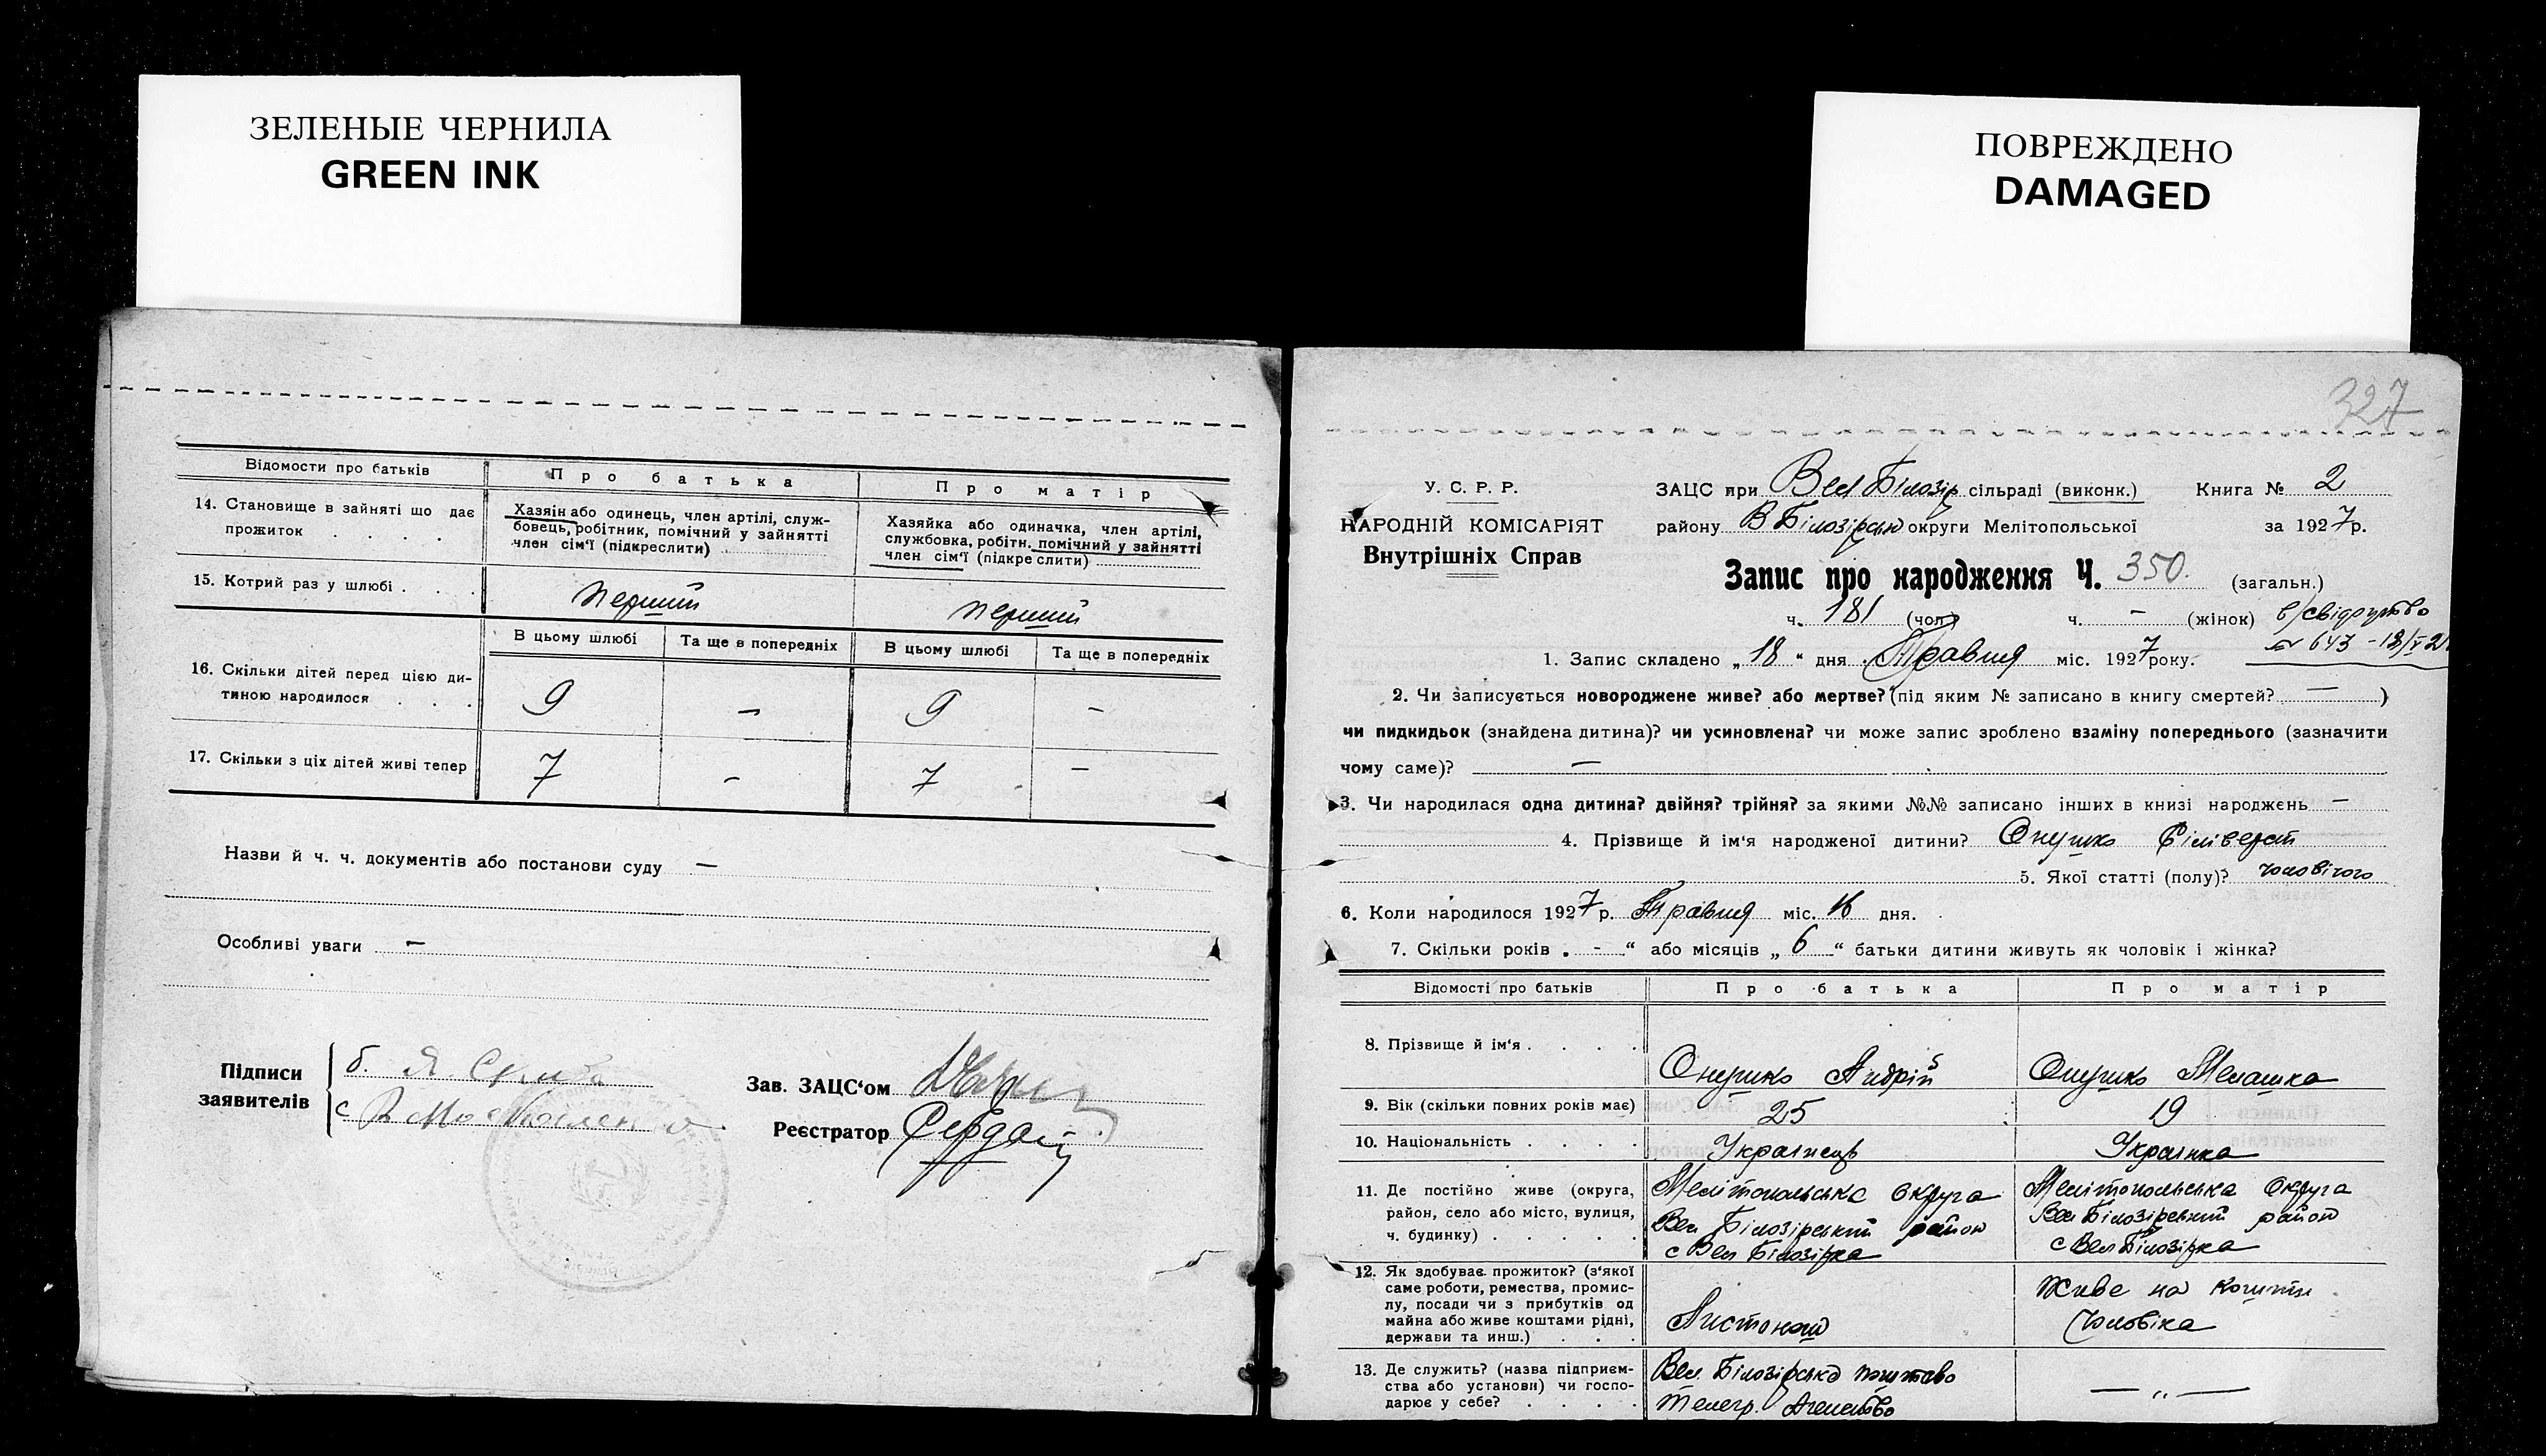 ЗЕЛЕНЫЕ ЧЕРНИЛА
GREEN INK
ПОВРЕЖДЕНО
DAMAGED
Відомости про батьків
Про батька
Про матір
14. Становище в зайняті що дає
прожиток . . . .
Хазяін або одинець, член артілі, служ-
бовець, робітник, помічний у зайнятті
член сім'ї (підкреслити)
Хазяйка або одиначка, член артілі,
службовка, робітн. помічний у зайнятті
член сім'ї (підкреслити)
15. Котрий раз у шлюбі . . .
перший
перший
В цьому шлюбі
Та ще в попередніх
В цьому шлюбі
Та ще в попередніх
16. Скільки дітей перед цією ди-
тиною народилося . . .
9 – 9 –
17. Скільки з ціх дітей живі тепер
7 – 7 –
Назви й ч. ч. документів або постанови суду —
Особливі уваги —
Підписи
заявителів
б. Я.
с
Зав. ЗАЦС‘ом
Реєстратор Сердай
327
У. С. Р. Р.
НАРОДНІЙ КОМІСАРІЯТ
Внутрішніх Справ
ЗАЦС при Вел Білозір сільраді (виконк.) Книга № 2
району В Білозірськ округи Мелітопольської за 1927р.
Запис про народження Ч. 350. (загальн.)
ч. 181 (чол) ч. – (жінок) в/свідоцтво
№ 643 - 18/V 2
1. Запис складено „ 18 “ дня Травня міс. 1927 року.
2. Чи записується новороджене живе? або мертве? (під яким № записано в книгу смертей? — )
чи пидкидьок (знайдена дитина)? чи усиновлена? чи може запис зроблено взаміну попереднього (зазначити
чому саме)? —
3. Чи народилася одна дитина? двійня? трійня? за якими №№ записано інших в книзі народжень —
4. Прізвище й ім'я народженої дитини? Онушко Сіліверст
5. Якої статті (полу)? чоловічого
6. Коли народилося 1927 р. Травня міс. 16 дня.
7. Скільки років „ - “ або місяців „ 6 “ батьки дитини живуть як чоловік і жінка?
Відомості про батьків
Про батька
Про матір
8. Прізвище й ім'я . . . .
Онушко Андрій
Онушко Мелашка
9. Вік (скільки повних років має)
25
19
10. Національність . . . .
Українець
Українка
11. Де постійно живе (округа,
район, село або місто, вулиця,
ч. будинку) . . . . .
Мелітопольська округа
Вел Білозірський район
с Вел Білозірка
Мелітопольська округа
Вел Білозірський район
с Вел Білозірка
12. Як здобуває прожиток? (з'якої
саме роботи, ремества, промис-
лу, посади чи з прибутків од
майна або живе коштами рідні,
держави та инш.) . . .
Листонош
Живе на кошти
чоловіка
13. Де служить? (назва підприєм-
ства або установи) чи госпо-
дарює у себе? . . . .
Вел. Білозірсько поштово
телегр. Агенство
— „ —